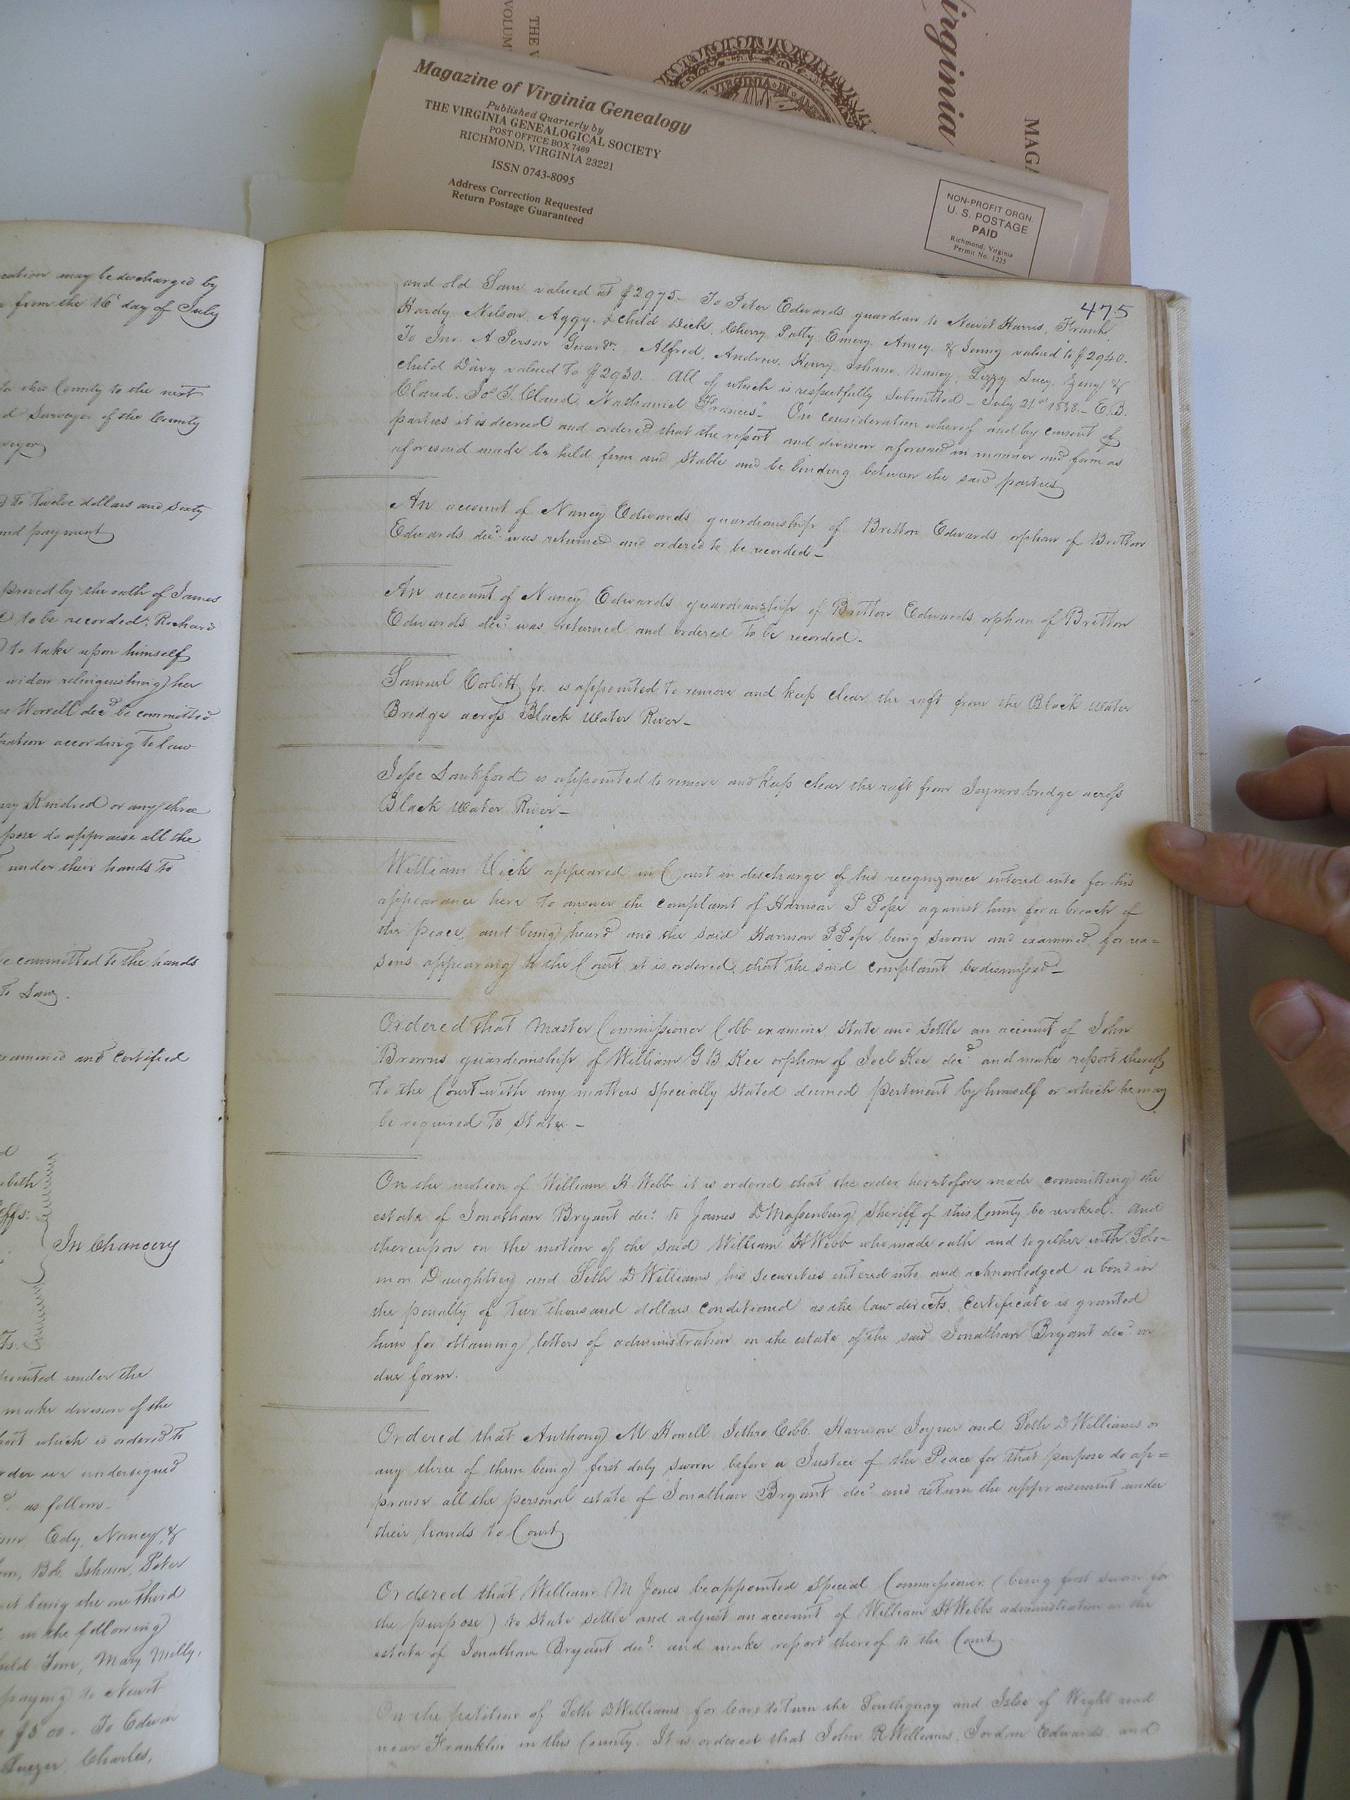 THE V
VOLUM
Virginia
MAGA
VIRGINIA
Magazine of Virginia Genealogy
Published Quarterly by
THE VIRGINIA GENEALOGICAL SOCIETY
POST OFFICE BOX 7469
RICHMOND, VIRGINIA 23221
ISSN 0743-8095
Address Correction Requested
Return Postage Guaranteed
NON-PROFIT ORGN.
U. S. POSTAGE
PAID
Richmond, Virginia
Permit No. 1225
may be discharged by
from the 16th day of July
this County to the next
Surveyor of the County
to twelve dollars and sixty
payment
proved by the oath of James
to be recorded. Richard
to take upon himself
widow relinquishing her
Worrell decd be committed
according to law
Kindred or any three
to appraise all the
under their hands to
committed to the hands
to Law.
examined and certified
In Chancery
under the
make division of the
which is ordered to
undersigned
as follows.
Edy, Nancy, &
Bob, Isham, Peter
being the one third
in the following
Tom, Mary Milly,
paying to Newit
$500. To Edwin
Charles,
475
and old Sam valued at $2975 - To Peter Edwards guardian to Newit Harris, Frank,
Hardy, Nelson, Aggy, & child Dick, Cherry, Patty, Emery, Amey, & Jenny valued to $2940.
To Jno. A Person Guardn. Alfred, Andrew, Henry, Isham, Nancy, Lizzy, Lucy, &
child Davy valued to $2930. All of which is respectfully submitted - July 21st 1838 - E. B.
Claud, Jos T. Claud, Nathaniel Francis". On consideration whereof and by consent of
parties it is decreed and ordered that the report and division aforesaid in manner and form as
aforesaid made be held firm and stable and be binding between the said parties
An account of Nancy Edwards guardianship of Britton Edwards orphan of Britton
Edwards decd. was returned and ordered to be recorded -
An account of Nancy Edwards guardianship of Britton Edwards orphan of Britton
Edwards decd. was returned and ordered to be recorded.
Samuel Corbitt, Jr. is appointed to remove and keep clear the raft from the Black water
Bridge across Black Water River -
Jesse Lankford is appointed to remove and keep clear the raft from Joyners bridge across
Black Water River -
William Vick appeared in Court in discharge of his recognizance entered into for his
appearance here to answer the complaint of Harrison P Pope against him for a breach of
the peace, and being heard and the said Harrison P Pope being sworn and examined, for rea=
sons appearing to the Court it is ordered, that the said complaint be dismissed -
Ordered that Master Commissioner Cobb examine State and Settle an account of John
Browns guardianship of William G B Kee orphan of Joel Kee decd and make report thereof
to the Court with any matters specially stated deemed pertinent by himself or which he may
be required to state -
On the motion of William H Webb it is ordered that the order heretofore made committing the
estate of Jonathan Bryant decd. to James D Massenburg Sheriff of this County be revoked. And
thereupon on the motion of the said William H Webb who made oath and together with Solo=
mon Daughtrey and Seth D Williams his securities entered into and acknowledged a bond in
the penalty of two thousand dollars conditioned as the law directs, certificate is granted
him for obtaining letters of administration on the estate of the said Jonathan Bryant decd in
due form.
Ordered that Anthony M Howell Jethro Cobb, Harrison Joyner and Seth D Williams or
any three of them being first duly sworn before a Justice of the Peace for that purpose do ap=
praise all the personal estate of Jonathan Bryant decd and return the appraisement under
their hands to Court
Ordered that William M Jones be appointed Special Commissioner (being first sworn for
the purpose) to state settle and adjust an account of William H Webbs administration on the
estate of Jonathan Bryant decd. and make report thereof to the Court
On the petition of Seth D Williams for leave to turn the Southquay and Isle of Wight road
near Franklin in this County. It is ordered that John R Williams, Jordan Edwards and